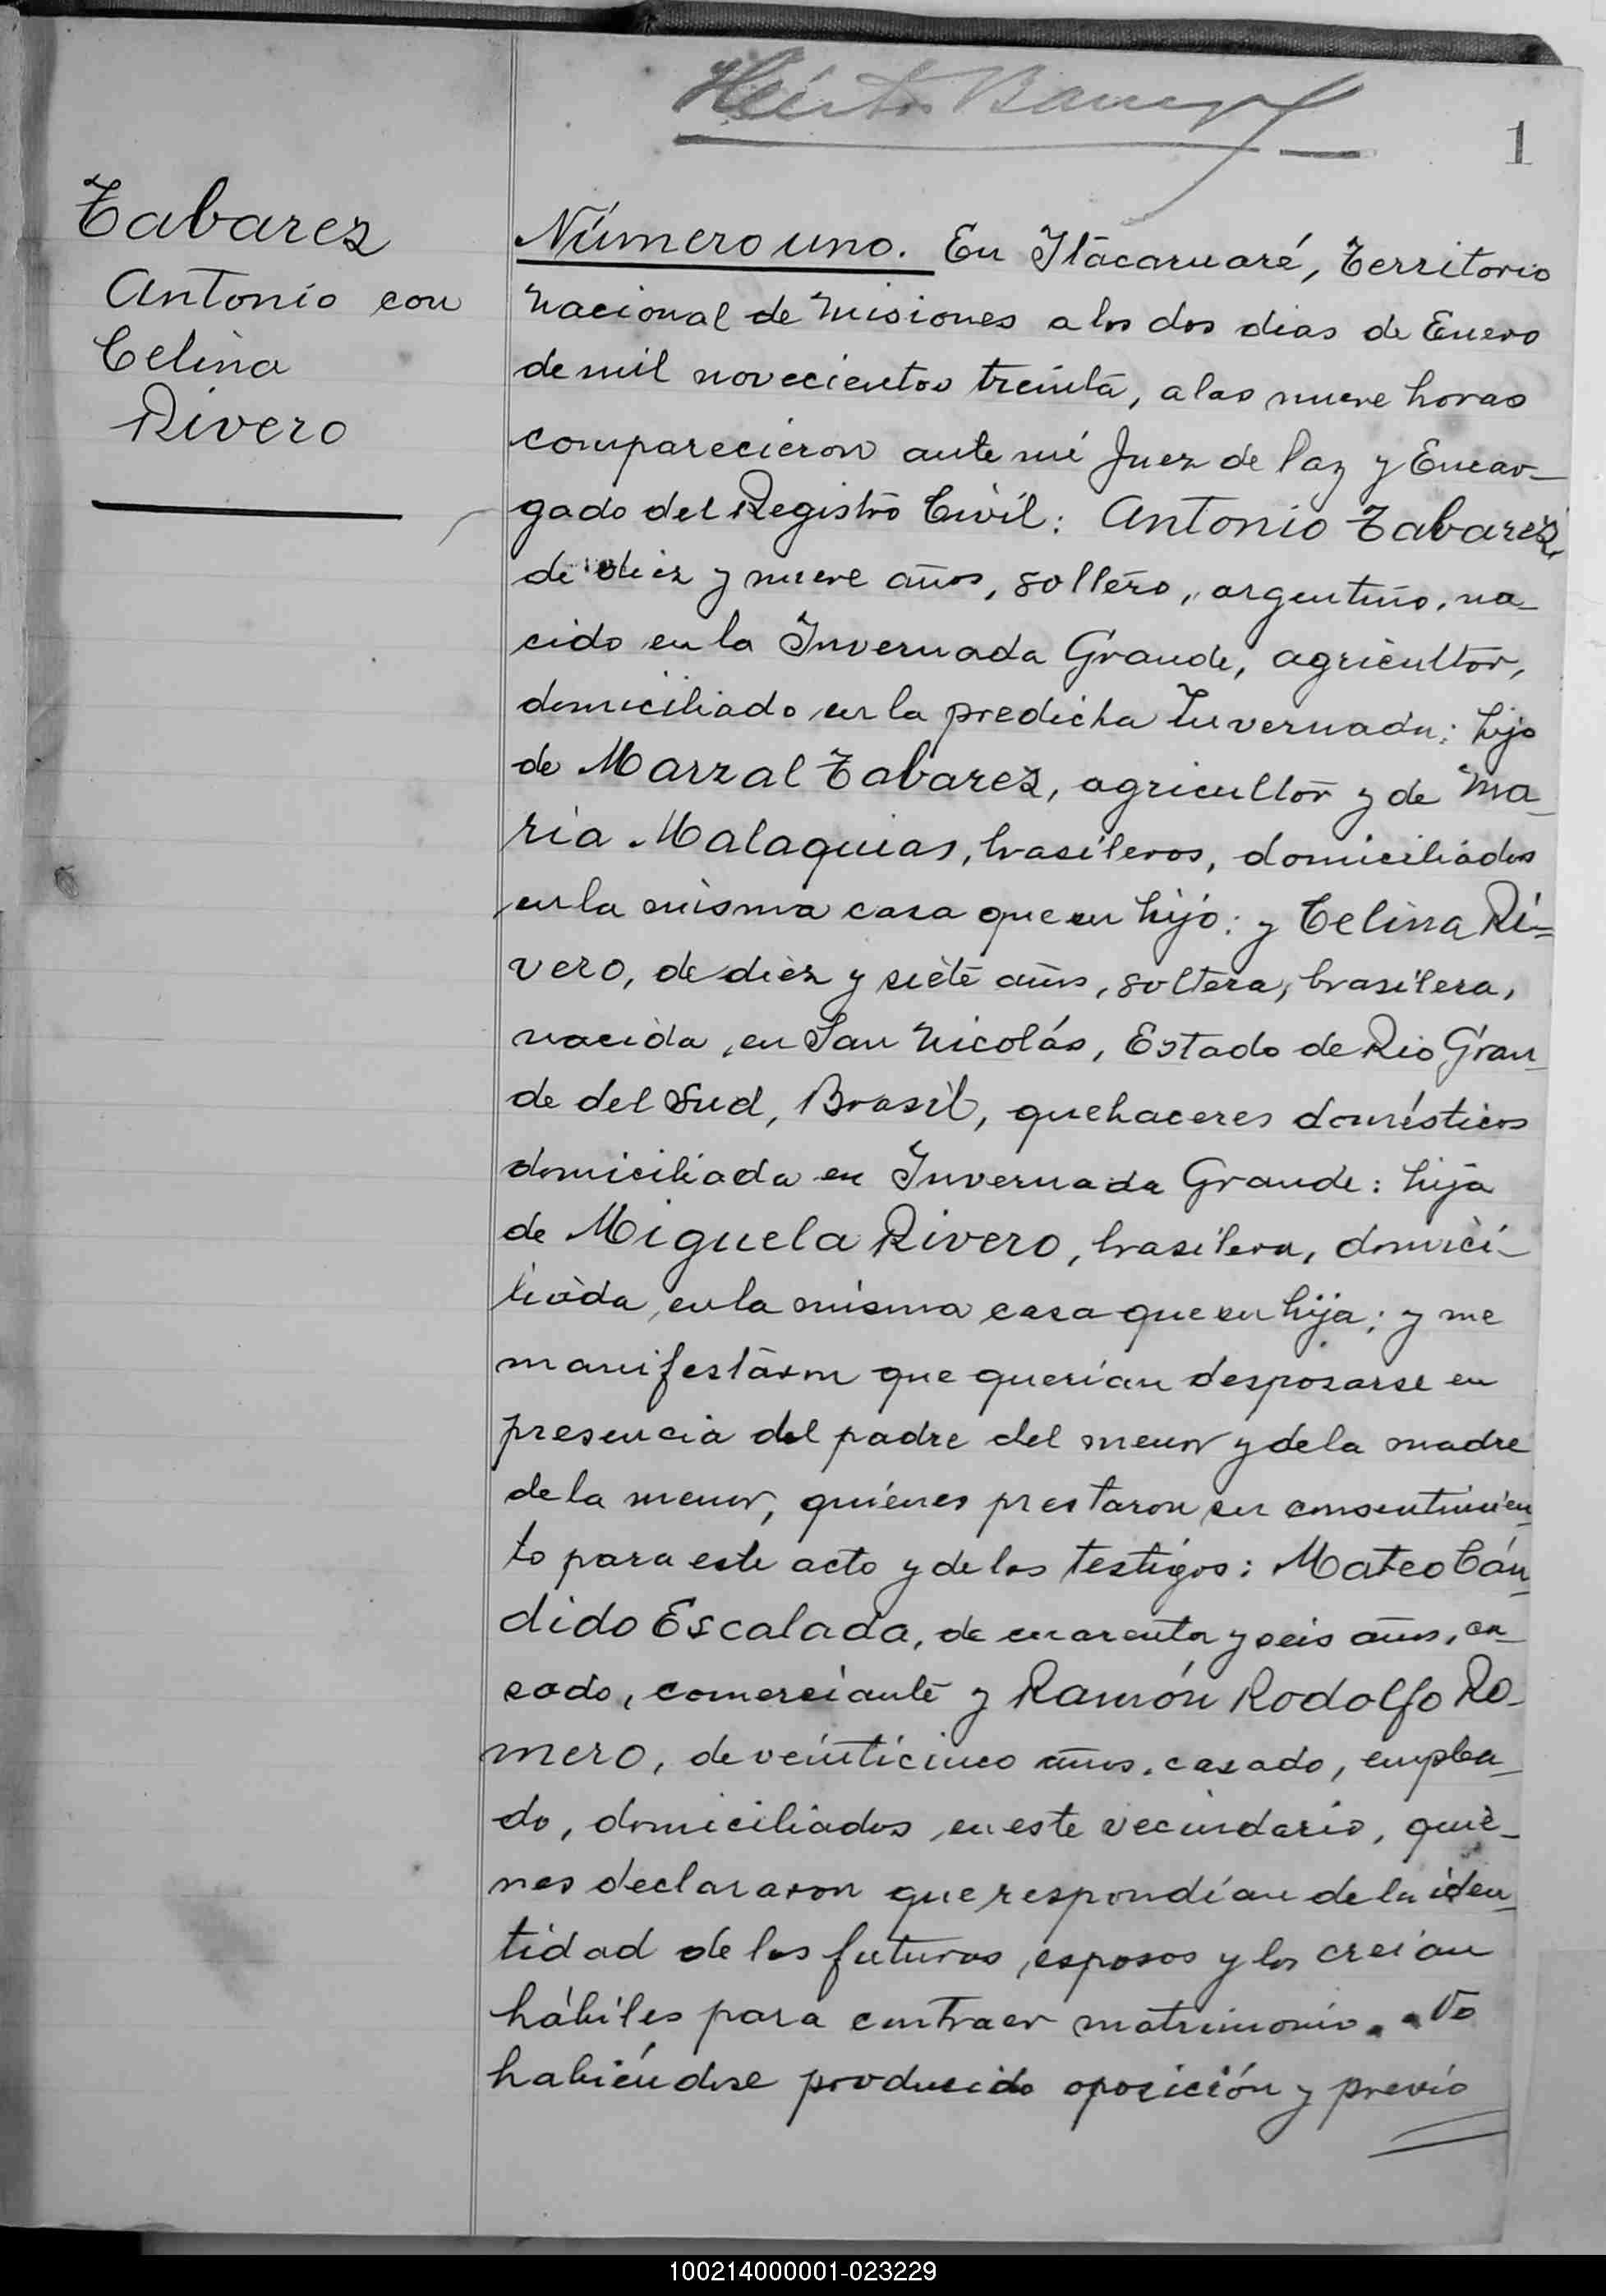 1
Tabarez
Antonio con
Celina
Rivero
Número uno. En Itacaruaré, Territorio
Nacional de Misiones a los dos dias de Enero
de mil novecientos treinta, a las nueve horas
comparecieron ante mi Juez de Paz y Encar-
gado del Registro Civil: Antonio Tabarez,
de diez y nueve años, soltero, argentino, na-
cido en la Invernada Grande, agricultor,
domiciliado en la predicha Invernada: hijo
de Marzal Tabarez, agricultor y de Ma-
ria Malaquias, brasileros, domiciliados
en la misma casa que su hijo: y Celina Ri=
vero, de diez y siete años, soltera, brasilera,
nacida en San Nicolás, Estado de Rio Gran-
de del Sud, Brasil, quehaceres domésticos
domiciliada en Invernada Grande: hija
de Miguela Rivero, brasilera, domici-
liada en la misma casa que su hija; y me
manifestaron que querían desposarse en
presencia del padre del menor y de la madre
de la menor, quiénes prestaron su consentimien-
to para este acto y de los testigos: Mateo Cán-
dido Escalada, de cuarenta y seis años, ca-
sado, comerciante y Ramón Rodolfo Ro-
mero, de veinticinco años, casado, emplea-
do, domiciliados en este vecindario, quié-
nes declararon que respondían de la iden-
tidad de los futuros esposos y los creían
hábiles para contraer matrimonio. No
habiéndose producido oposición y previo
100214000001-023229